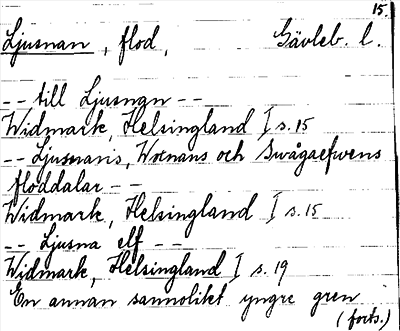 15.
Ljusnan, flod, Gävleb. l.
-- till Ljusngn --
Widmark, Helsingland I s. 15
-- Ljusnans, Woxnans och Swågaelfwens
floddalar --
Widmark, Helsingland I s. 15
-- Ljusna elf --
Widmark, Helsingland I s. 19
En annan sannolikt yngre gren
(forts.)